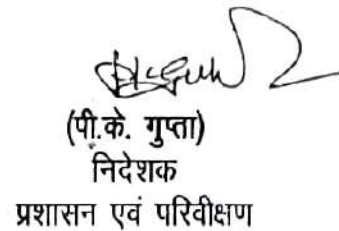 (पी.के. गुप्ता)
निदेशक
प्रशासन एवं परिवीक्षण